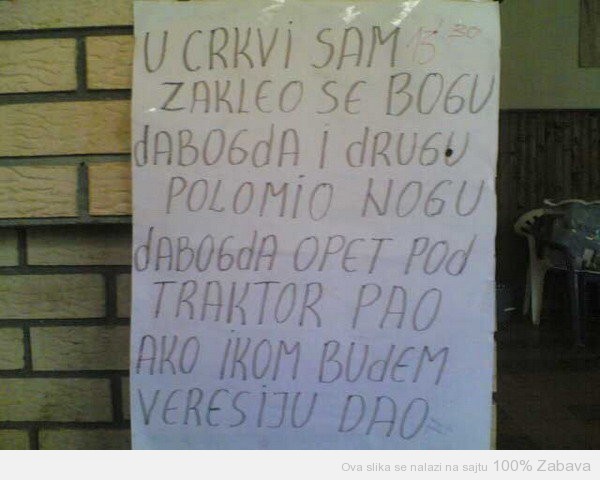 U CRKVi SAM
ZAKLEO SE BOGU
dABOGdA i dRUGU
POLOMIO NOGU
dABOGdA OPET POd
TRAKTOR PAO
AKO iKOM BUdEM
VERESiJU DAO
Ova slika se nalazi na sajtu 100% Zabava